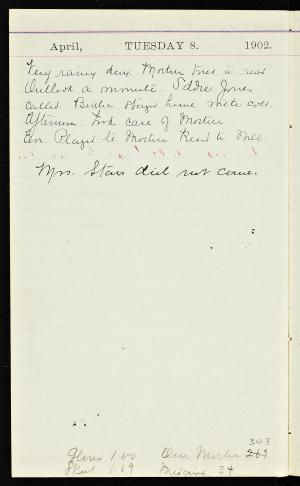 April, TUESDAY 8. 1902.
Very rainy day. Mother tried to read
Outlook a minute. Eddie Jones
called. Bertha stays home with cold.
Afternoon. Took care of Mother
Eve. Played to Mother. Read to
Mrs. Stars did not come.
303
Gloves 1.00 Owe Mother
Skirt 1.69 34